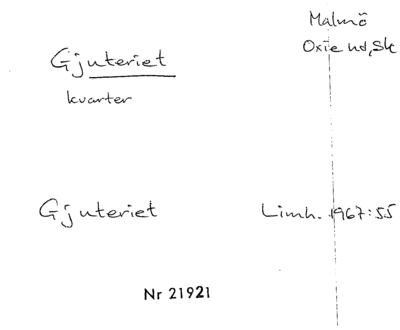 Malmö
Oxie hd, Sk
Gjuteriet
kvarter
Gjuteriet Limh. 1967:55
Nr 21921